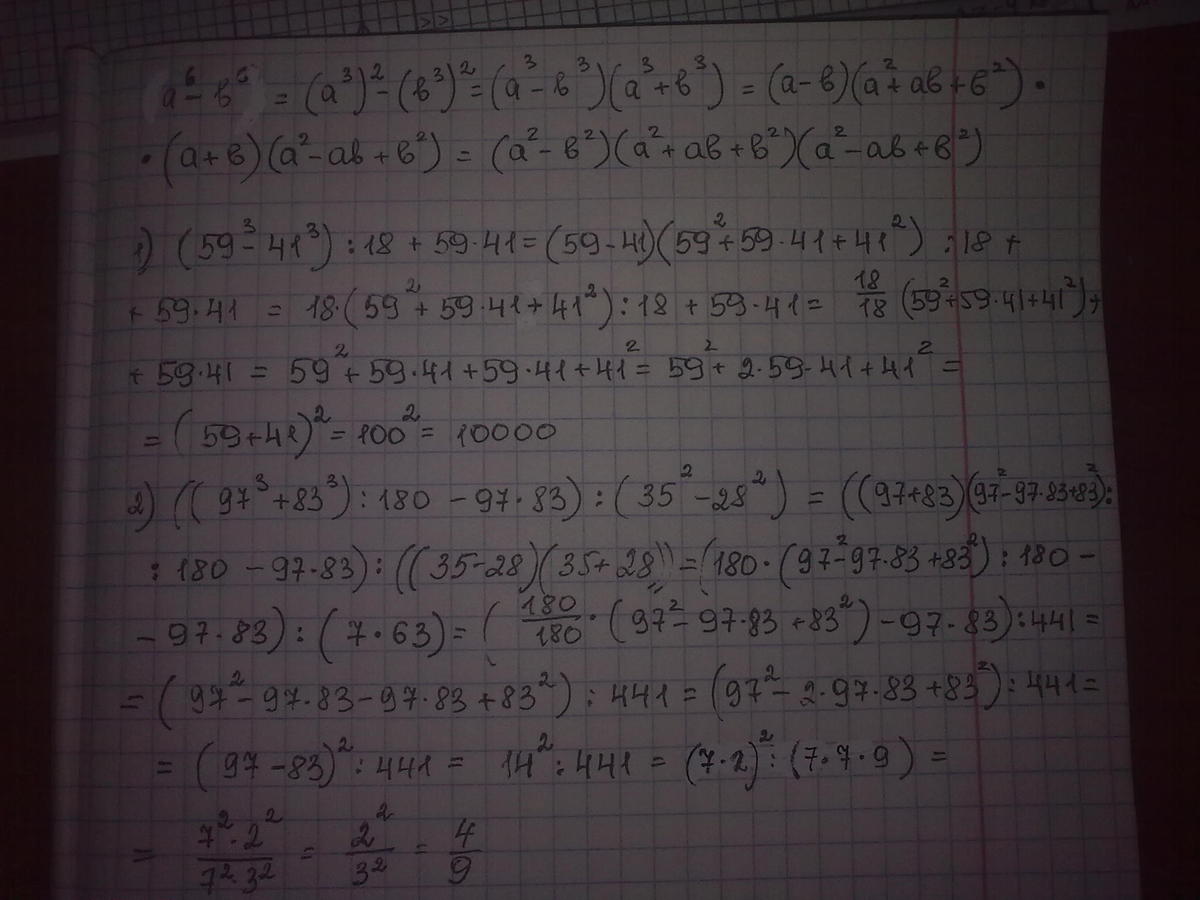 a⁶ - в⁶ = (a³)² - (в³)² = (a³ - в³)(a³ + в³) = (a - в)(a² + aв + в²) •
• (a + в)(a² - aв + в²) = (a² - в²)(a² + aв + в²)(a² - aв + в²)
1) (59³ - 41³) : 18 + 59·41 = (59 - 41)(59² + 59·41 + 41²) : 18 +
+ 59·41 = 18·(59² + 59·41 + 41²) : 18 + 59·41 = 18/18 (59² + 59·41 + 41²) +
+ 59·41 = 59² + 59·41 + 59·41 + 41² = 59² + 2·59·41 + 41² =
= (59 + 41)² = 100² = 10000
2) ((97³ + 83³) : 180 - 97·83) : (35² - 28²) = ((97 + 83)(97² - 97·83 + 83²) :
: 180 - 97·83) : ((35 - 28)(35 + 28)) = (180·(97² - 97·83 + 83²) : 180 -
- 97·83) : (7·63) = (180/180 · (97² - 97·83 + 83²) - 97·83) : 441 =
= (97² - 97·83 - 97·83 + 83²) : 441 = (97² - 2·97·83 + 83²) : 441 =
= (97 - 83)² : 441 = 14² : 441 = (7·2)² : (7·7·9) =
= 7²·2²/7²·3² = 2²/3² = 4/9